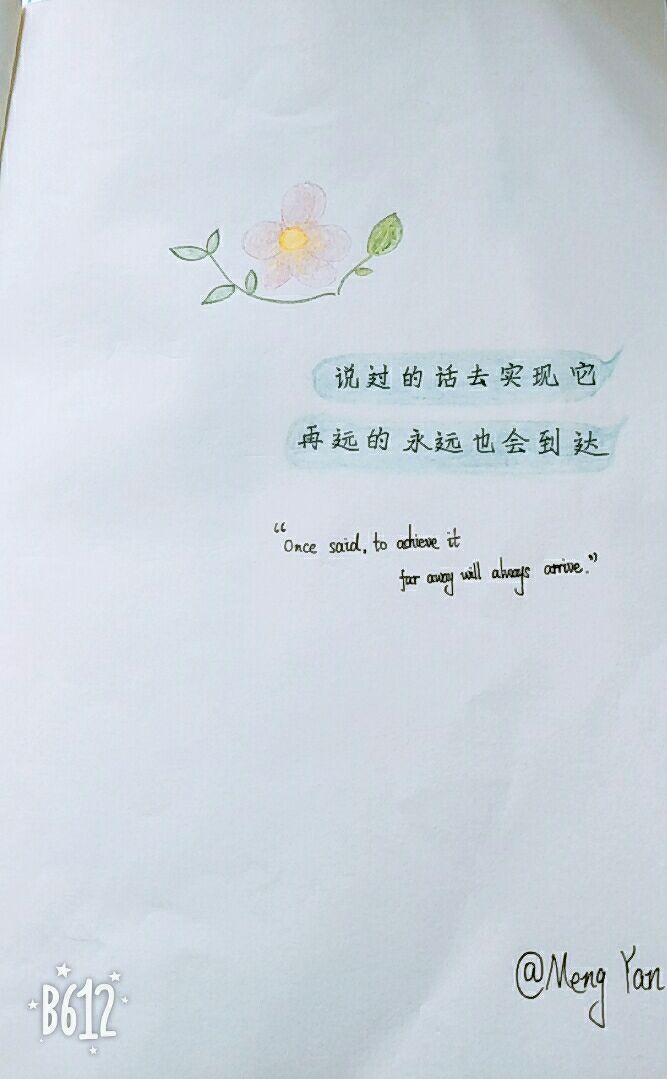 说过的话去实现它
再远的永远也会到达
“Once said, to achieve it
far away will always arrive.”
@Meng Yan
B612